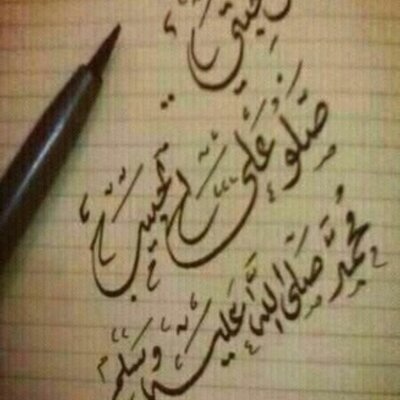 صَلّو عَلَى الحبيب
مُحمَّد صَلَّى اللهُ عَلَيْهِ وَسَلَّم